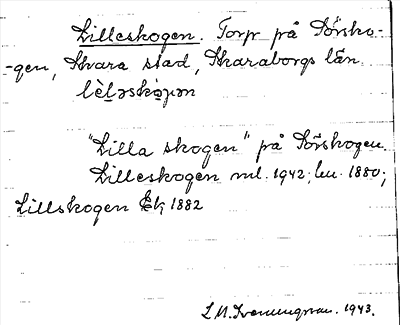 Lilleskogen. Torp på Sörsko-
-gen, Skara stad, Skaraborgs län.
"Lilla skogen" på Sörskogen.
Lilleskogen ml. 1942; 1880;
Lillskogen Ek, 1882
1943.